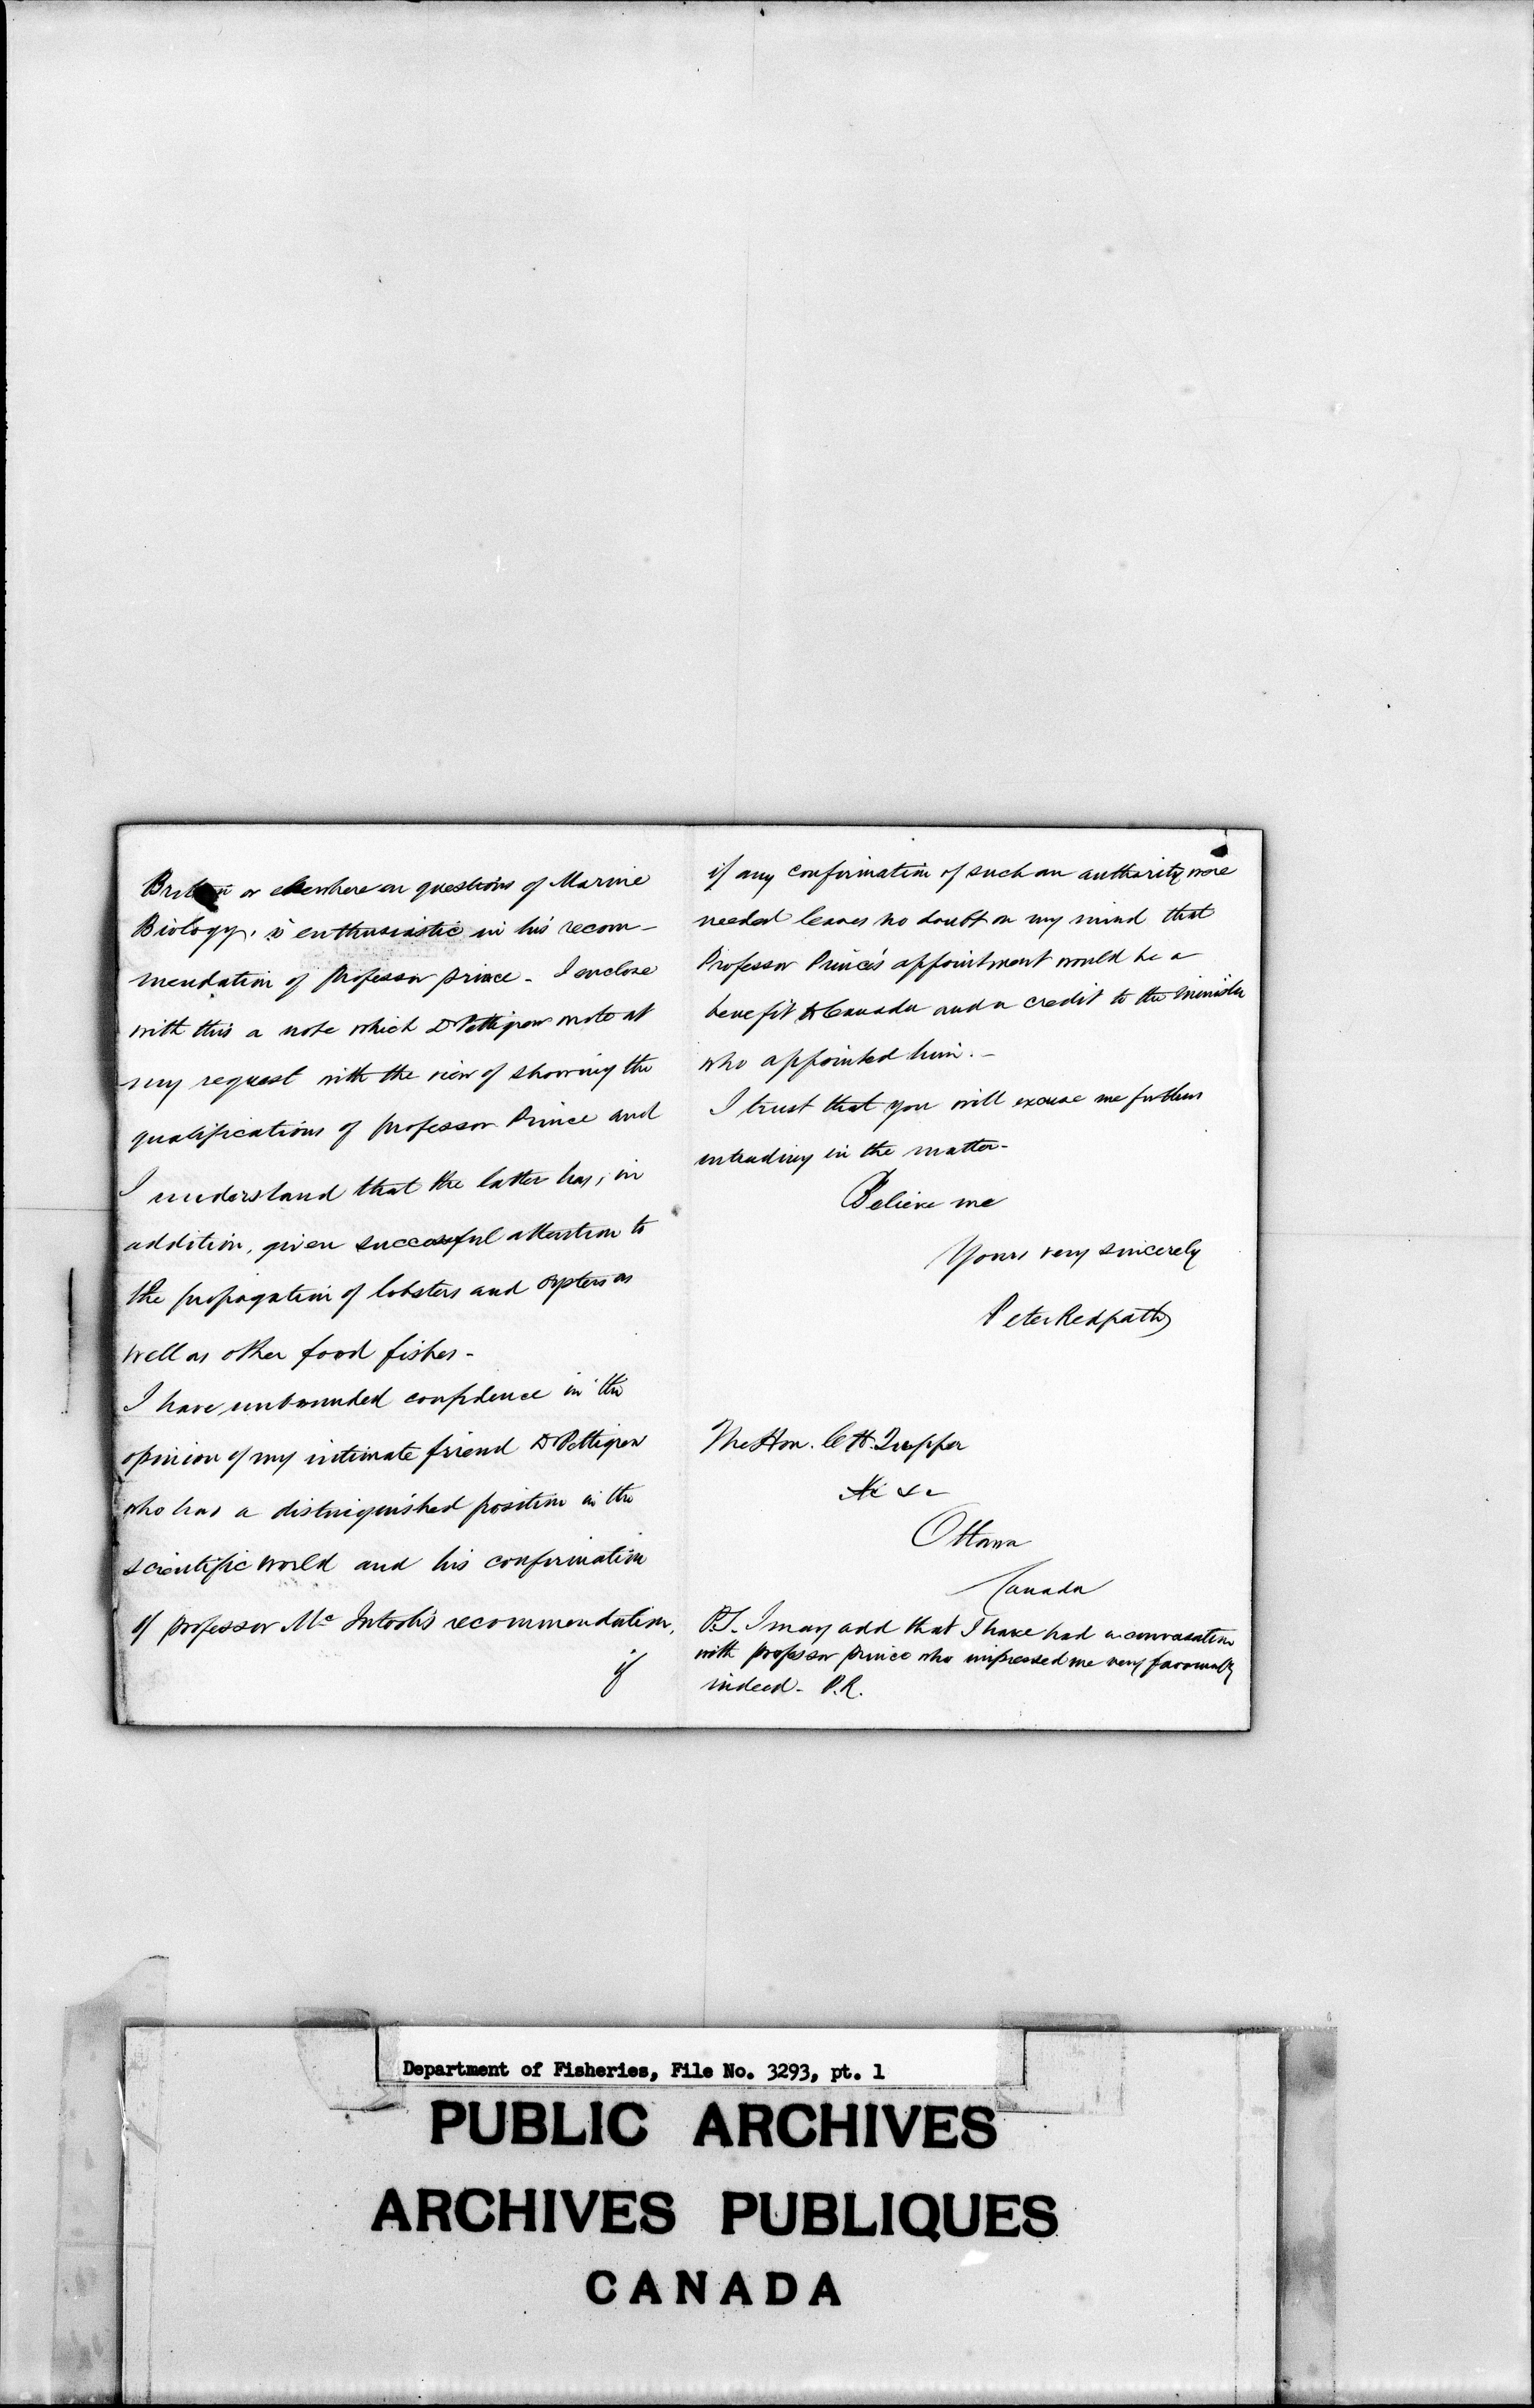 Britain or elsewhere on questions of Marine
Biology, is enthusiastic in his recom-
mendation of Professor Prince - I enclose
with this a note which Dr Pettigrew wrote at
my request with the view of showing the
qualifications of Professor Prince and
I understand that the latter has, in
addition, given successful attention to
the propagation of lobsters and oysters as
well as other food fishes -
I have unbounded confidence in the
opinion of my intimate friend Dr Pettigrew
who has a distinguished position in the
scientific world and his confirmation
of Professor Mc Intosh's recommendation,
if
if any confirmation of such an authority were
needed leaves no doubt on my mind that
Professor Prince's appointment would be a
benefit to Canada and a credit to the Minister
who appointed him. -
I trust that you will excuse me further
intruding in the matter -
Believe me
Yours very sincerely
Peter Redpath
The Hon. C H. Tupper
&c &c
Ottawa
Canada
P.S. I may add that I have had a conversation
with Professor Prince who impressed me very favourably
indeed - P.R.
Department of Fisheries, File No. 3293, pt. 1
PUBLIC ARCHIVES
ARCHIVES PUBLIQUES
CANADA